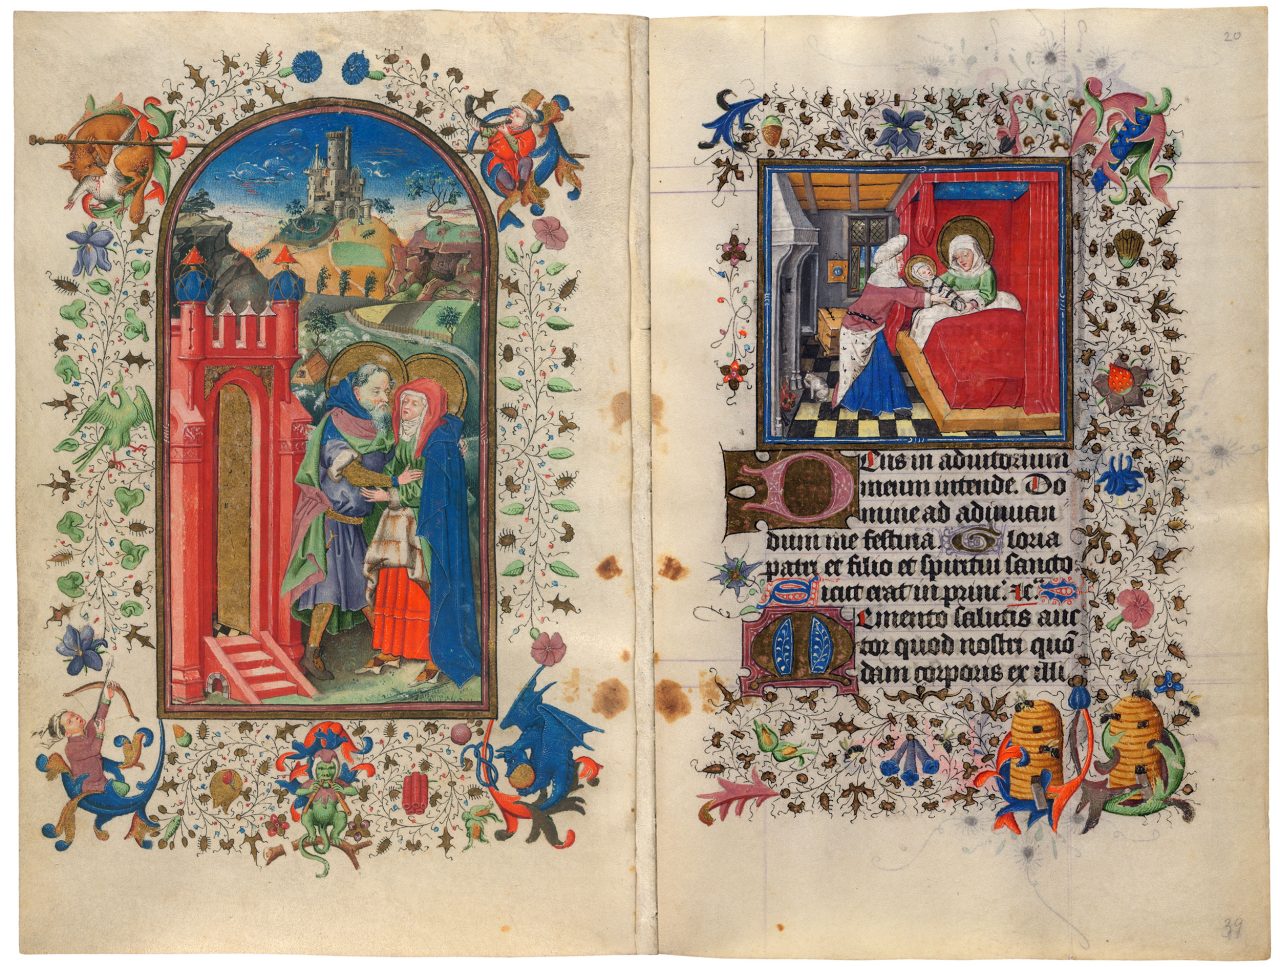 20
Deus in adiutorium
meum intende. Do
mine ad adiuuan
dum me festina Gloria
patri et filio et spiritui sancto
Sicut erat in princ. Ac̄
Memento salutis auc
tor quod nostri quō
dam corporis ex illi
39